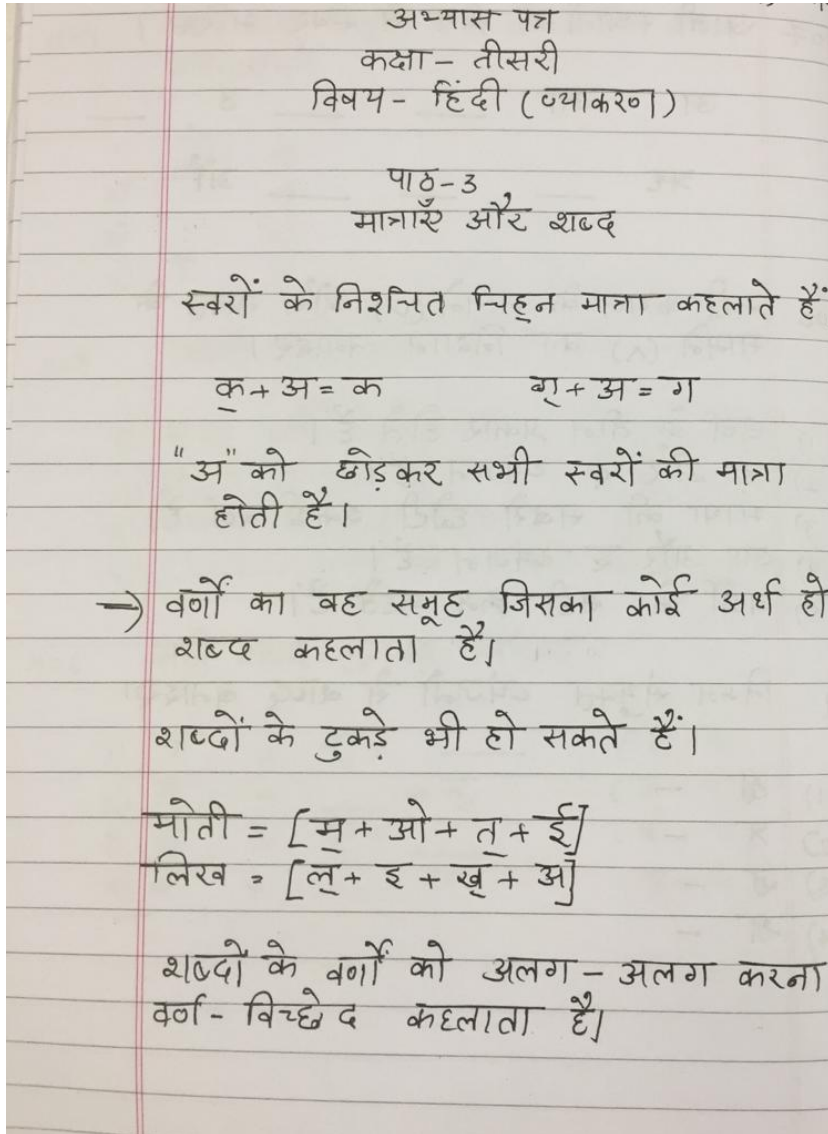 अभ्यास पत्र
कक्षा - तीसरी
विषय - हिंदी (व्याकरण)
पाठ-3
मात्राएँ और शब्द
स्वरों के निश्चित चिह्न मात्रा कहलाते हैं
क् + अ = क ग् + अ = ग
"अ" को छोड़कर सभी स्वरों की मात्रा
होती है।
→ वर्णों का वह समूह जिसका कोई अर्थ हो
शब्द कहलाता है।
शब्दों के टुकड़े भी हो सकते हैं।
मोती = [म् + ओ + त् + ई]
लिख = [ल् + इ + ख् + अ]
शब्दों के वर्णों को अलग - अलग करना
वर्ण - विच्छेद कहलाता है।